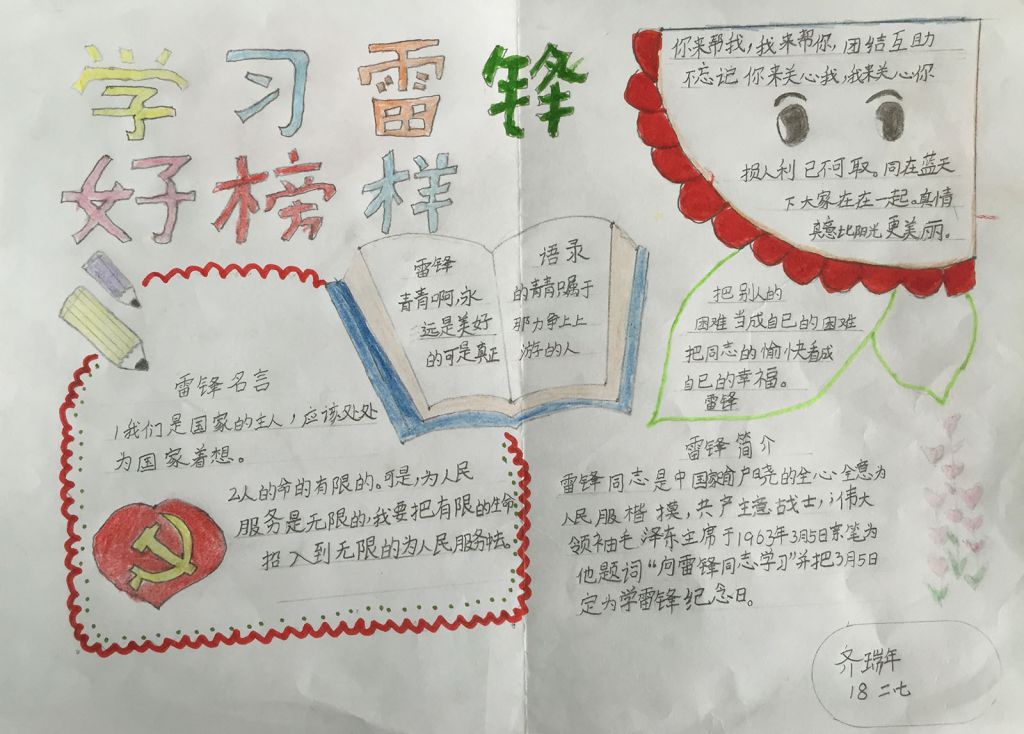 学习雷锋
好榜样
你来帮我，我来帮你，团结互助
不忘记 你来关心我，我来关心你
损人利己不可取。同在蓝天
下大家在在一起。真情
真意比阳光更美丽。
雷锋
青青啊，永
远是美好
的可是真正
语录
的青青只属于
那力争上上
游的人
把别人的
困难当成自己的困难
把同志的愉快看成
自己的幸福。
雷锋
雷锋名言
1我们是国家的主人，应该处处
为国家着想。
2人的命的有限的。可是，为人民
服务是无限的，我要把有限的生命
招入到无限的为人民服务中去。
雷锋简介
雷锋同志是中国家俞户晓的全心全意为
人民服楷模，共产主意战士，伟大
领袖毛泽东主席于1963年3月5日亲笔为
他题词“向雷锋同志学习”并把3月5日
定为学雷锋纪念日。
齐瑞年
18 二七